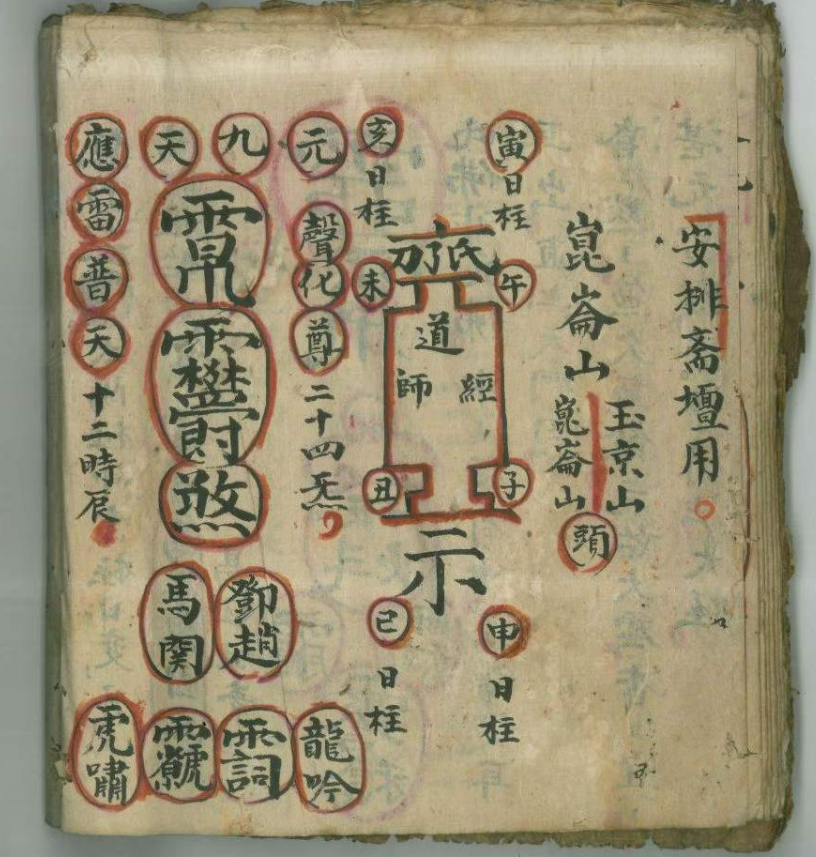 安排斋壇用
崑崙山
玉京山
崑崙山
頭
寅日柱
午
道
經
師
子
丑
示
申日柱
亥日柱
未
巳日柱
元
聲化尊二十四炁
龍吟
九
天
煞
鄧趙
馬関
虎嘯
應雷普天十二時辰